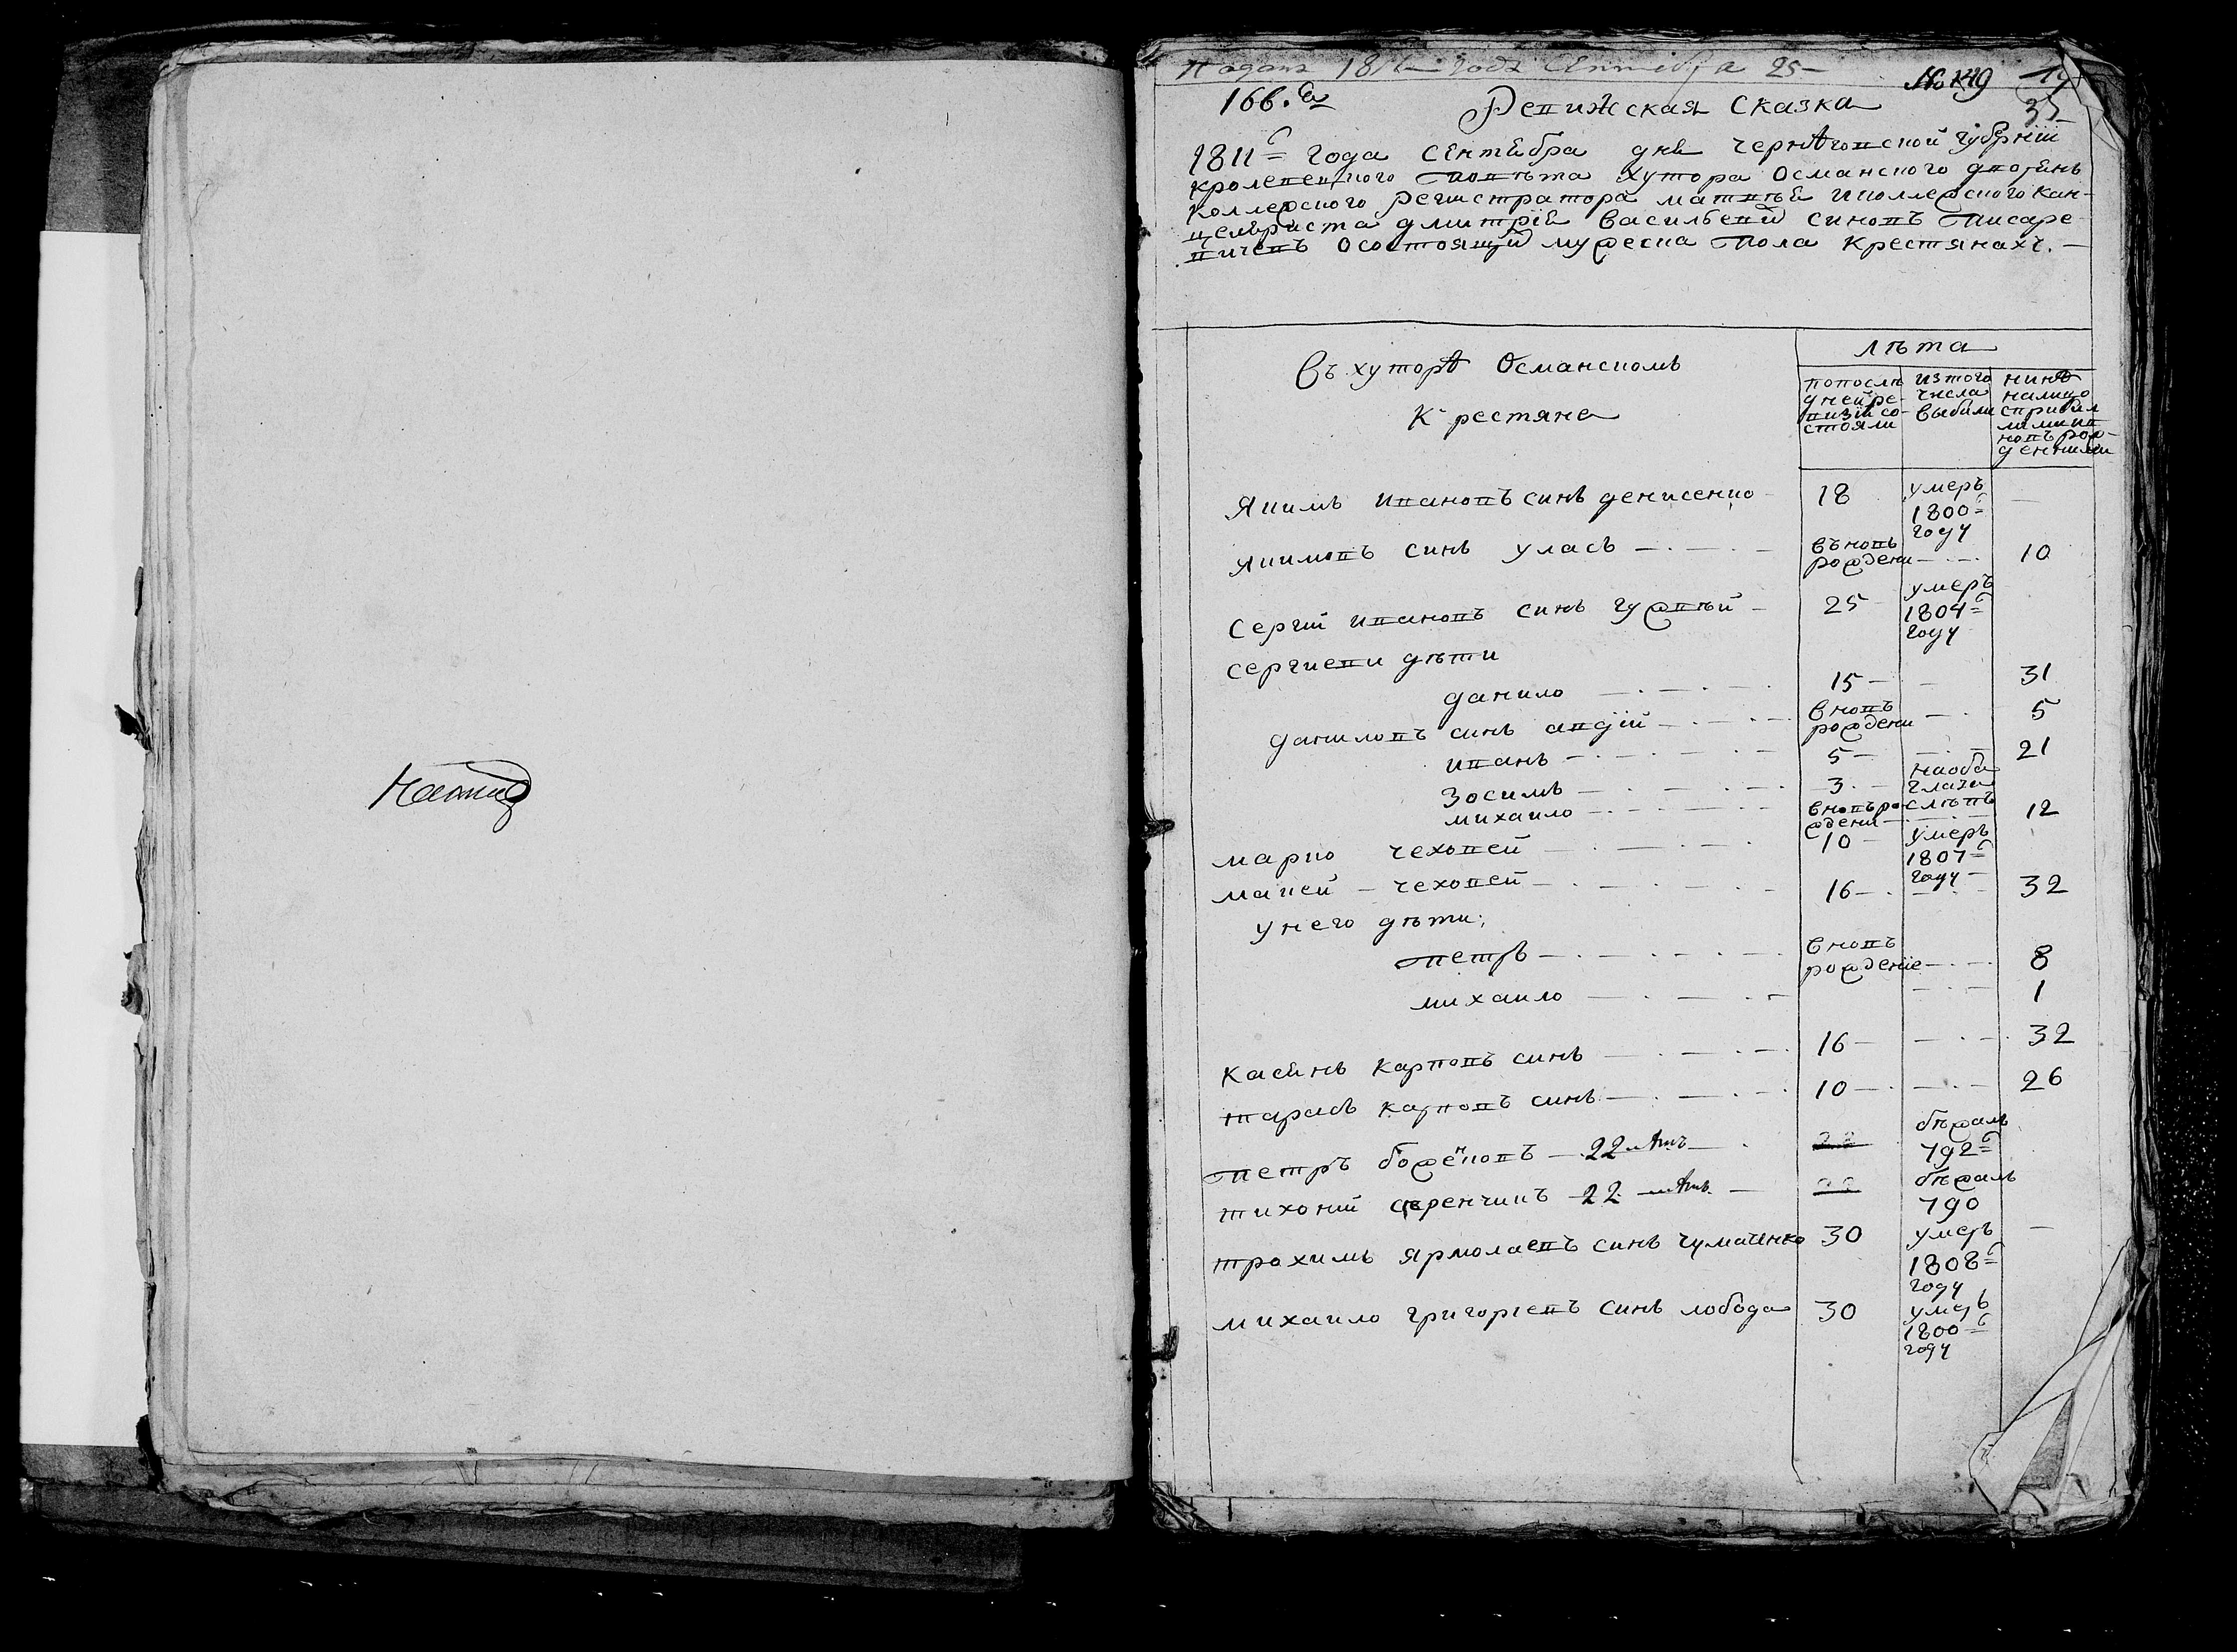 Подана 1811 года Сентября 25
№ 149
166.
35
Ревижская Сказка
1811г года Сентебра дня Чернѣговской губерніи
кролевецкого повѣта хутора Османского
Коллежского Регистратора Матвѣя и коллежского Кан-
целяриста Дмитрія Васильевих синовъ Писаре
вичевъ о состоящих мужеска пола крестянахъ.
Въ хуторѣ Османскомъ
Крестяне
лѣта
попослѣ
дней ре-
визіи со-
стояли
из того
числа
выбили
нинѣ
налицо
сприбил
ними и в
новъ рож-
денними
Якимъ Ивановъ синъ Денисенко 18 умеръ 1800г году —
Якимовъ синъ Уласъ вьновь рожденн 10
Сергій Ивановъ синъ 25 умеръ 1804г году
Сергиеви дѣти
Данило 15 31
Даниловъ синъ Авдій вновъ рожденн 5
Иванъ 5 21
Зосимъ 3 наоба глаза слѣпъ
Михаило вновъ рожденн 12
Марко Чеховей 10 умеръ 1807г году
Макей Чеховей 16 32
У него дѣти:
Петръ вновъ рожденіе 8
Михаило 1
Касянъ Карповъ синъ 16 32
Тарасъ Карповъ синъ 10 26
Петръ Боженковъ 22 лѣтъ бѣжалъ 792г
Тихоній 22 лѣтъ бѣжалъ 790
Трохимъ Ярмолаевъ синъ Чумаченко 30 умеръ 1808г году —
Михаило Григориевъ синъ Лобода 30 умеръ 1800г году